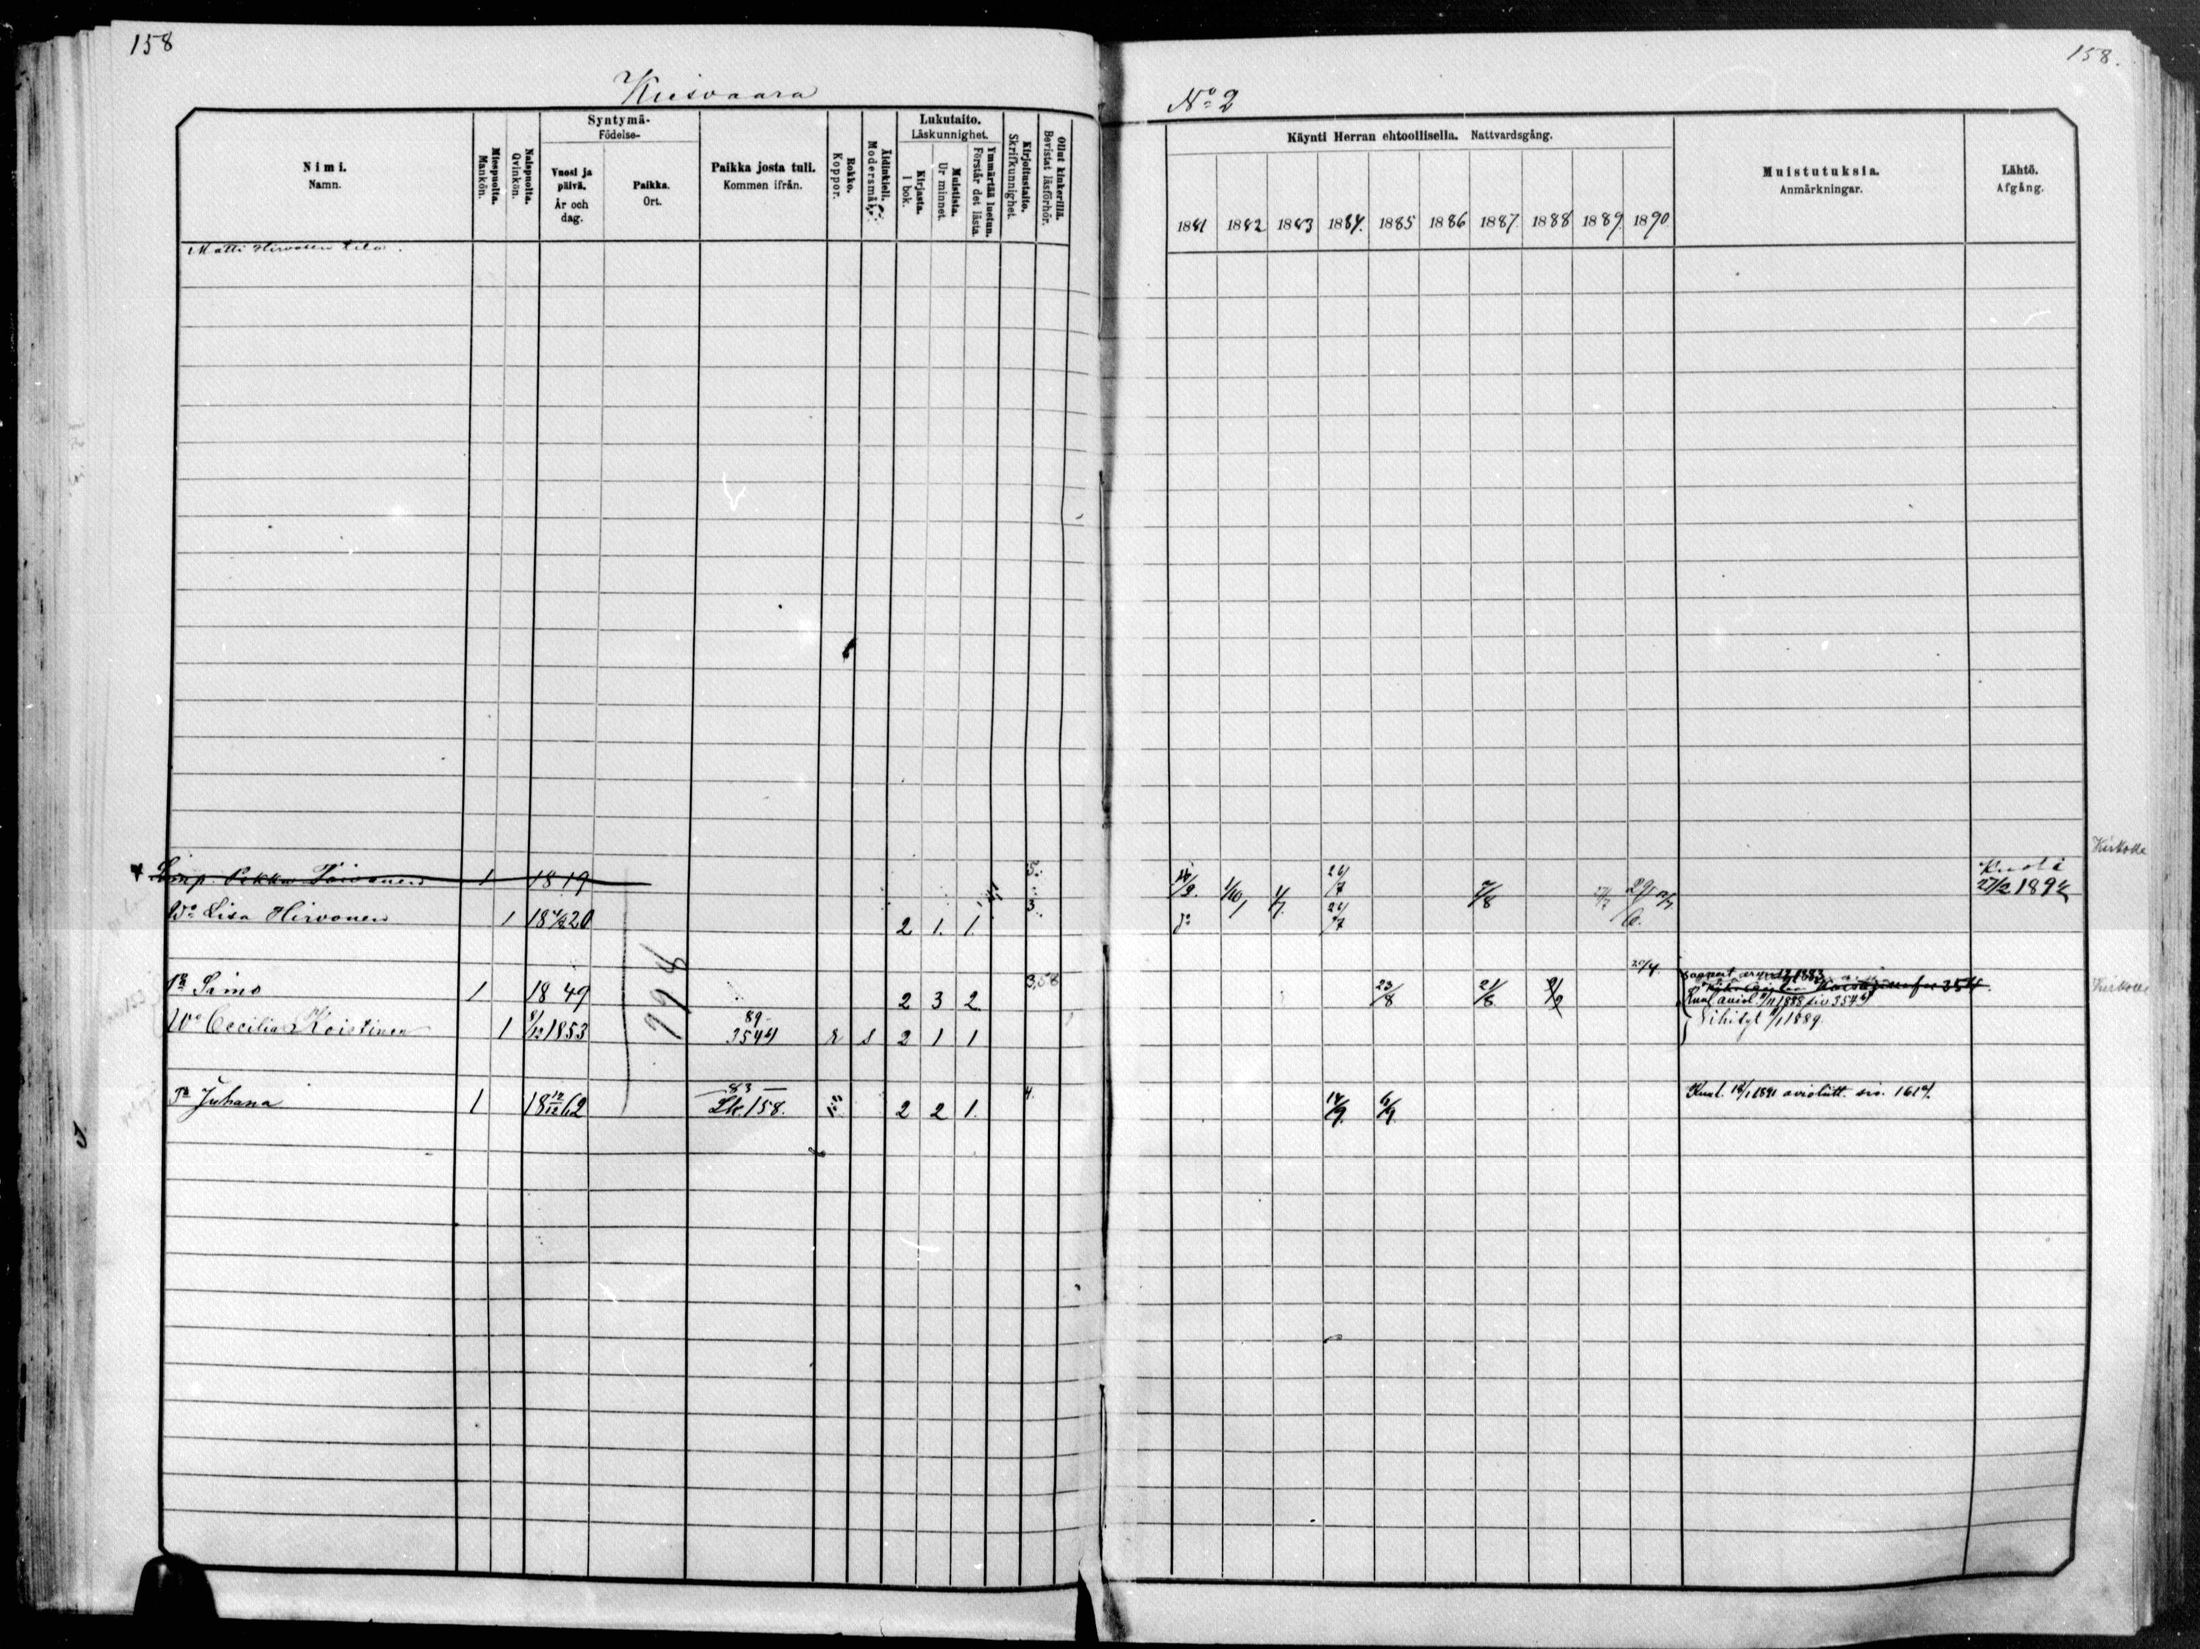 158
158.
Kiisvaara
No 2
Nimi.
Namn.
Miespuolta.
Mankön.
Naispuolta.
Qvinkön.
Syntymä-
Födelse-
Vuosi ja
päivä.
År och
dag.
Paikka.
Ort.
Paikka josta tuli.
Kommen ifrån.
Rokko.
Koppor.
Äidinkieli.
Modersmål.
Lukutaito.
Läskunnighet.
Kirjasta.
I bok.
Muistista.
Ur minnet.
Ymmärtää luetun.
Förstår det lästa.
Kirjoitustaito.
Skrifkunnighet.
Ollut kinkerillä.
Bevistat läsförhör.
Käynti Herran ehtoollisella. Nattvardsgång.
1881 1882 1883 1884. 1885 1886 1887. 1888 1889. 1890.
Muistutuksia.
Anmärkningar.
Lähtö.
Afgång.
Matti Hirvosen tila.
Kirkolle
Pekka Toivanen 1 1819 5. 1/10 26/7 7/8
Kuoli
27/2 1892
Wo Lisa Hirvonen 1 18 20 2 1. 1. 3 do 26/7
998
Pa Simo 1 1849 2 3 2 3,58 23/8 21/8 20/4.
Kuul. aviol. 1888 siv. 354
Vihityt 1889.
Kirkolle
Wo Cecilia Koistinen 1 8/12 1853 89- 354 r s 2 1 1
Pa Juhana 1 18 12/12 62 83- Lk. 158. 2 2 1. 4. 14/9. 6/9.
Kuul. 18/1 1891 avioliitt. siv. 161